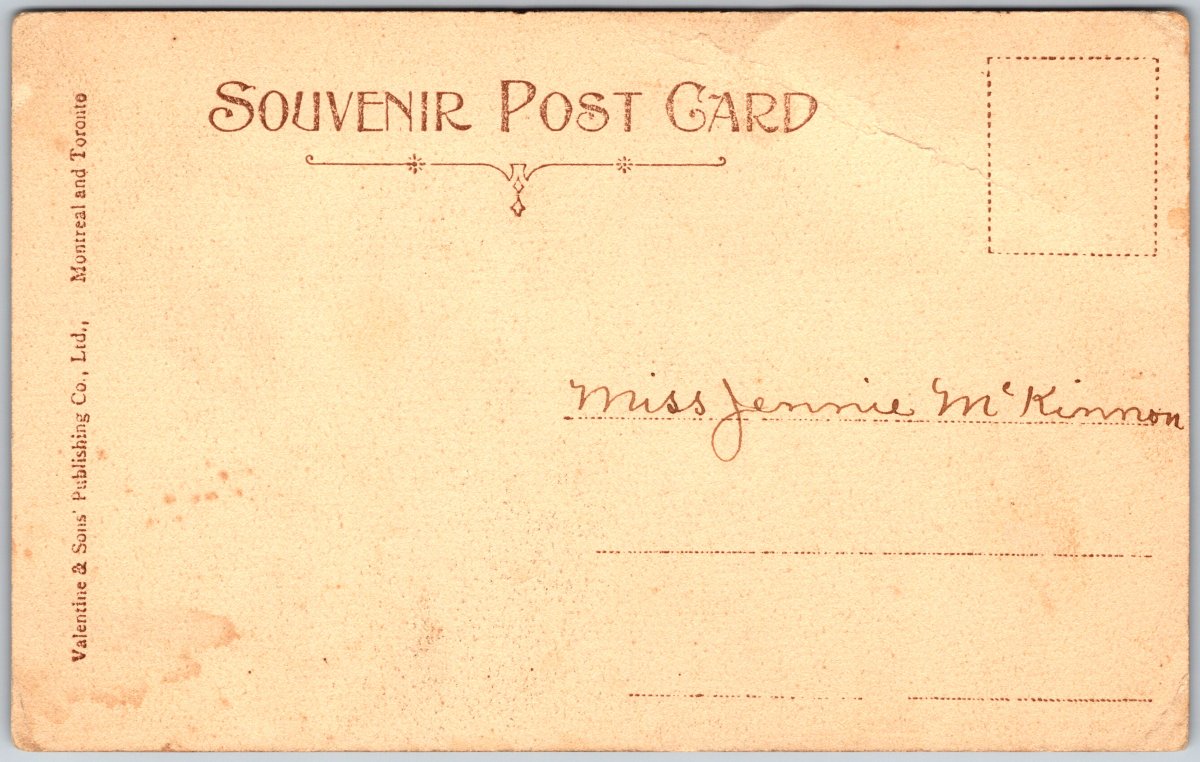 SOUVENIR POST CARD
Valentine & Sons' Publishing Co., Ltd., Montreal and Toronto
Miss Jennie McKinnon